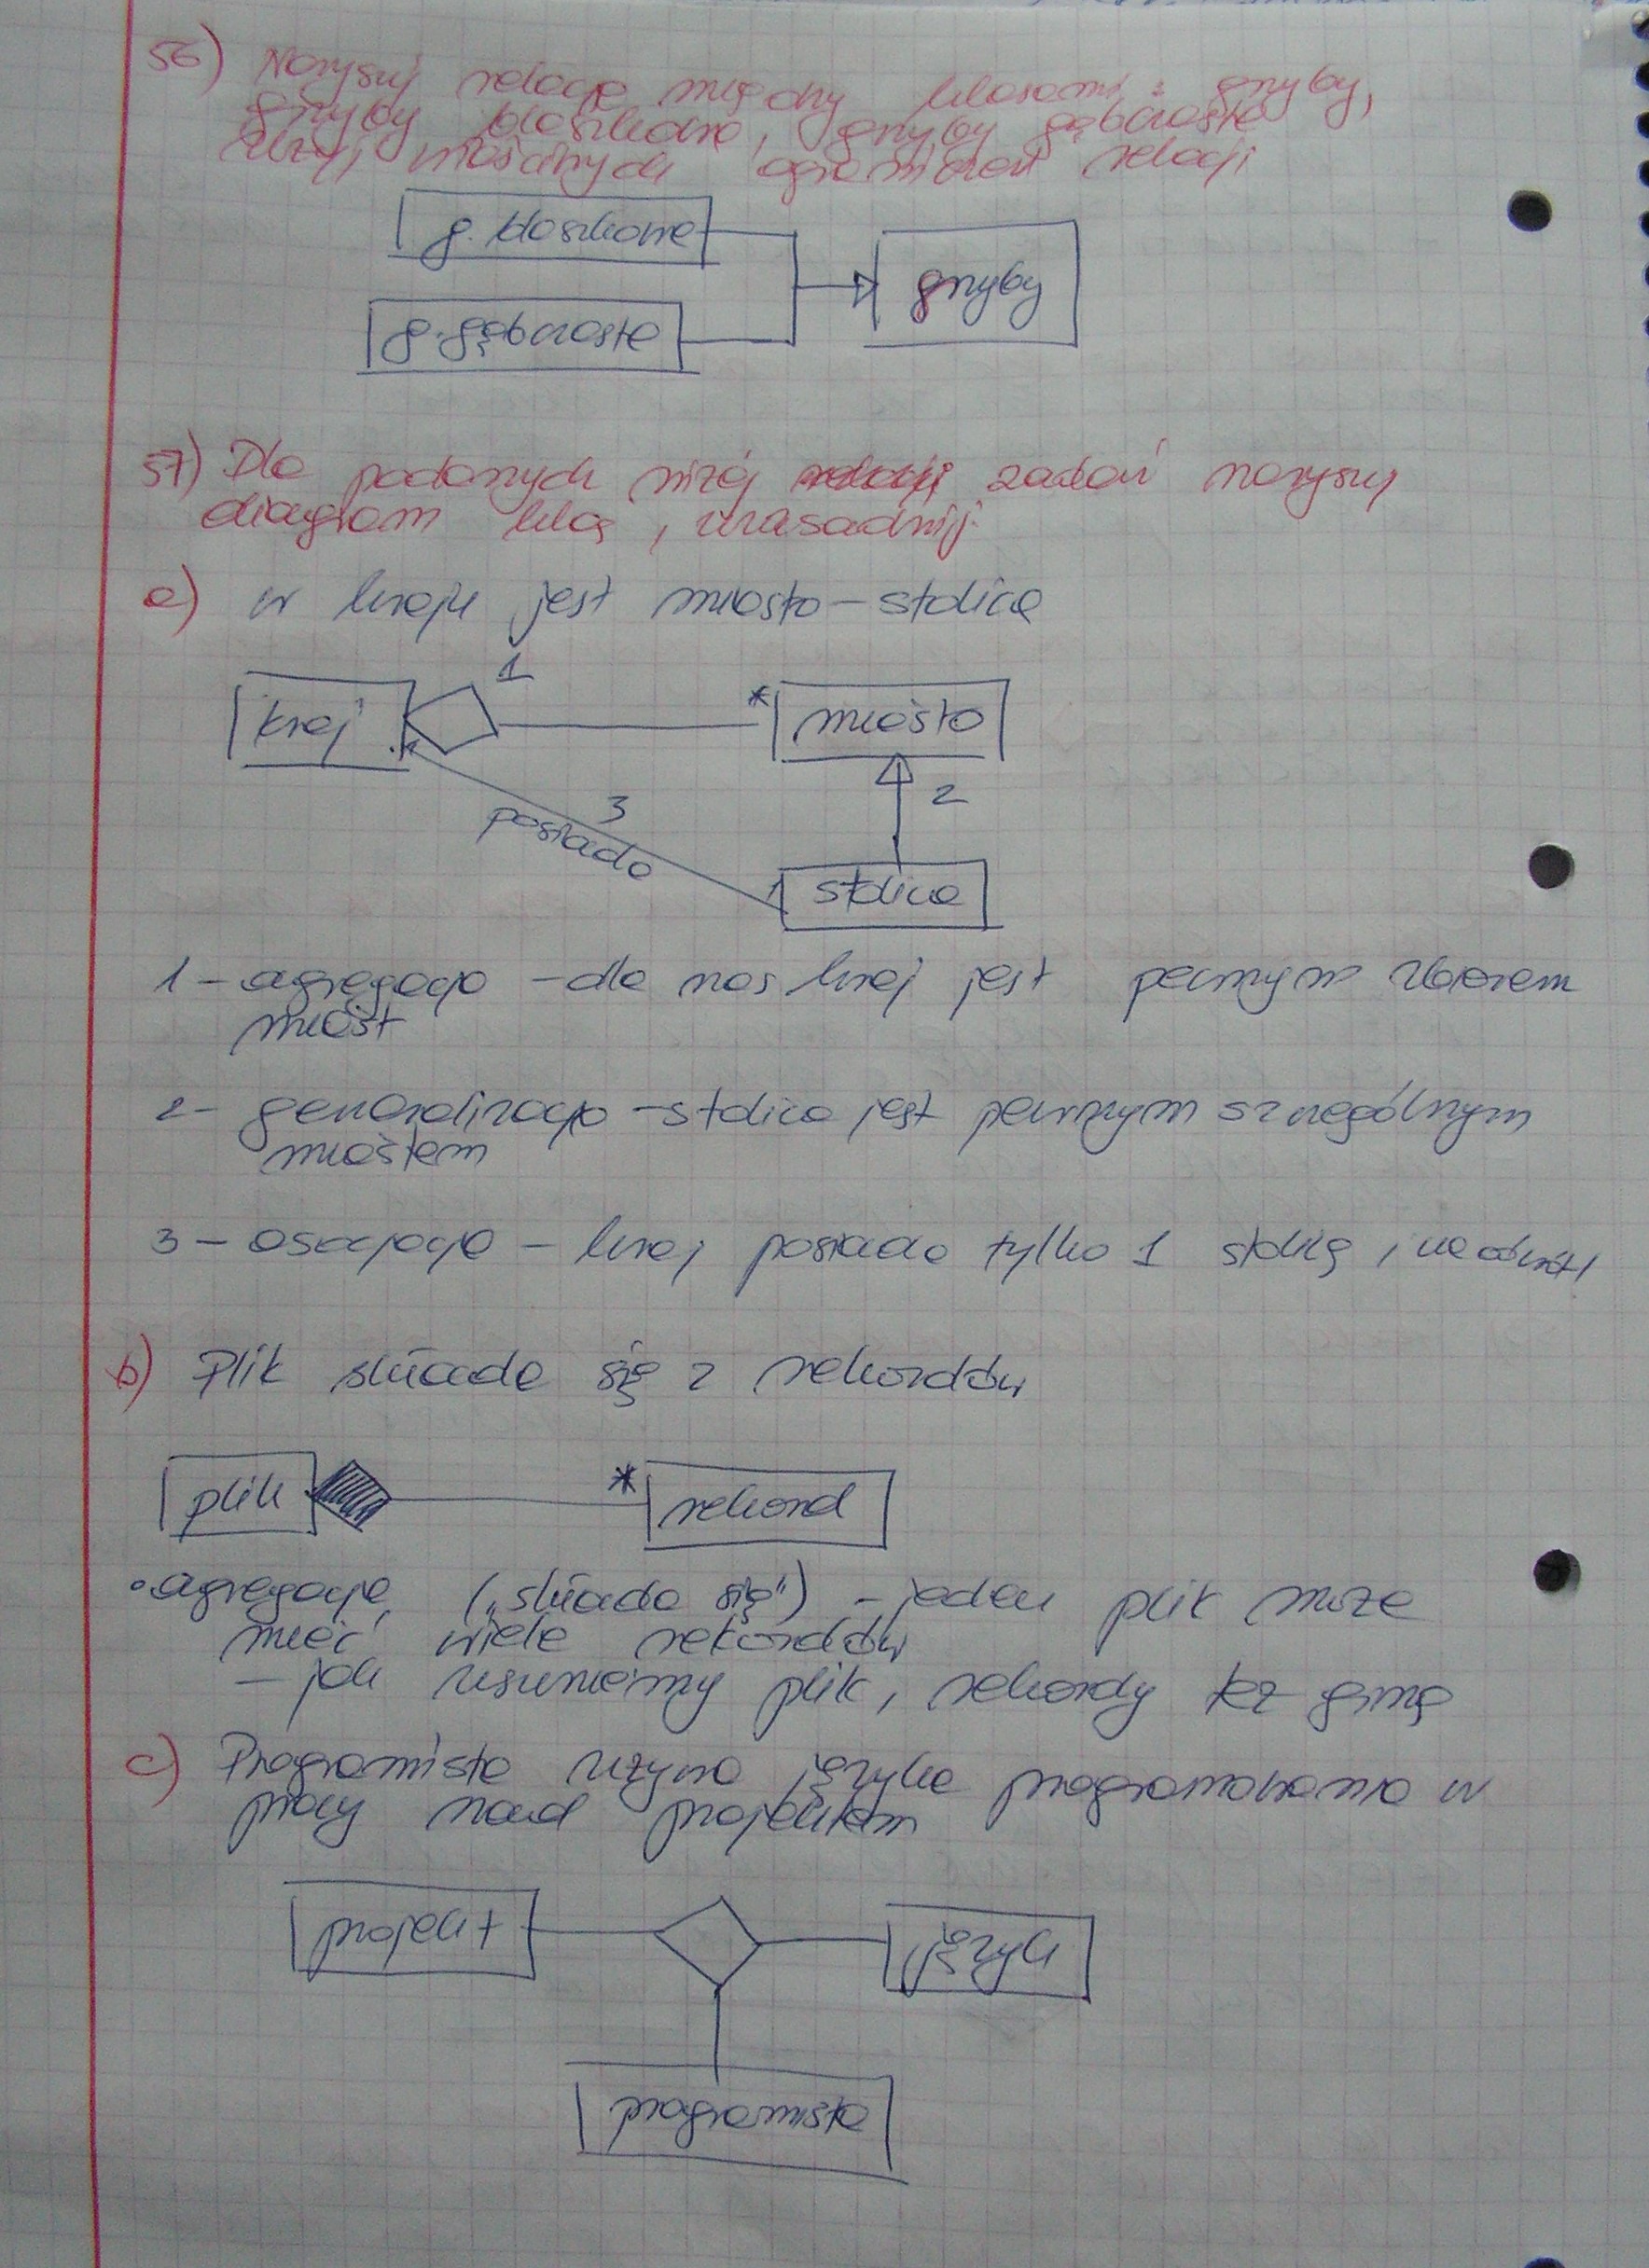 56) Narysuj relacje między klasami: grzyby,
grzyby blaszkowe, grzyby gąbczaste
użyj właściwych ograniczeń relacji
g. blaszkowe
grzyby
g. gąbczaste
57) Dla podanych niżej relacji zadań narysuj
diagram klas, uzasadnij:
a) w kraju jest miasto - stolica
1
kraj
*
miasto
2
3
posiada
1
stolica
1 - agregacja - dla nas kraj jest pewnym zbiorem
miast
2 - generalizacja - stolica jest pewnym szczególnym
miastem
3 - asocjacja - kraj posiada tylko 1 stolicę,
b) Plik składa się z rekordów
plik
*
rekord
• agregacja („składa się") - jeden plik może
mieć wiele rekordów
- jak usuniemy plik, rekordy też giną
c) Programista używa języka programowania w
pracy nad projektem
projekt
język
programista